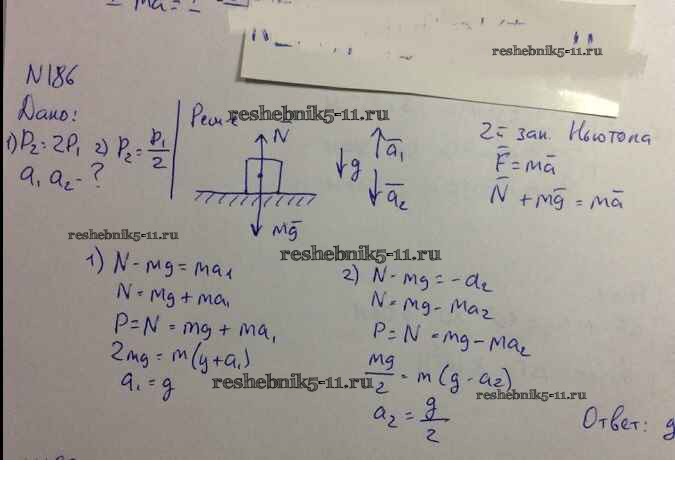 ma =
reshebnik5-11.ru
N186
Дано:
1) P₂ = 2P₁ 2) P₂ = P₁/2
a₁ a₂ - ?
reshebnik5-11.ru
N
a̅₁
g
a̅₂
mg̅
2й зак. Ньютона
F̅ = ma̅
N̅ + mg̅ = ma̅
reshebnik5-11.ru
reshebnik5-11.ru
1) N - mg = ma₁
N = mg + ma₁
P = N = mg + ma₁
2mg = m(g + a₁)
a₁ = g
2) N - mg = -a₂
N = mg - ma₂
P = N = mg - ma₂
mg/2 = m(g - a₂)
a₂ = g/2
reshebnik5-11.ru
reshebnik5-11.ru
Ответ: g